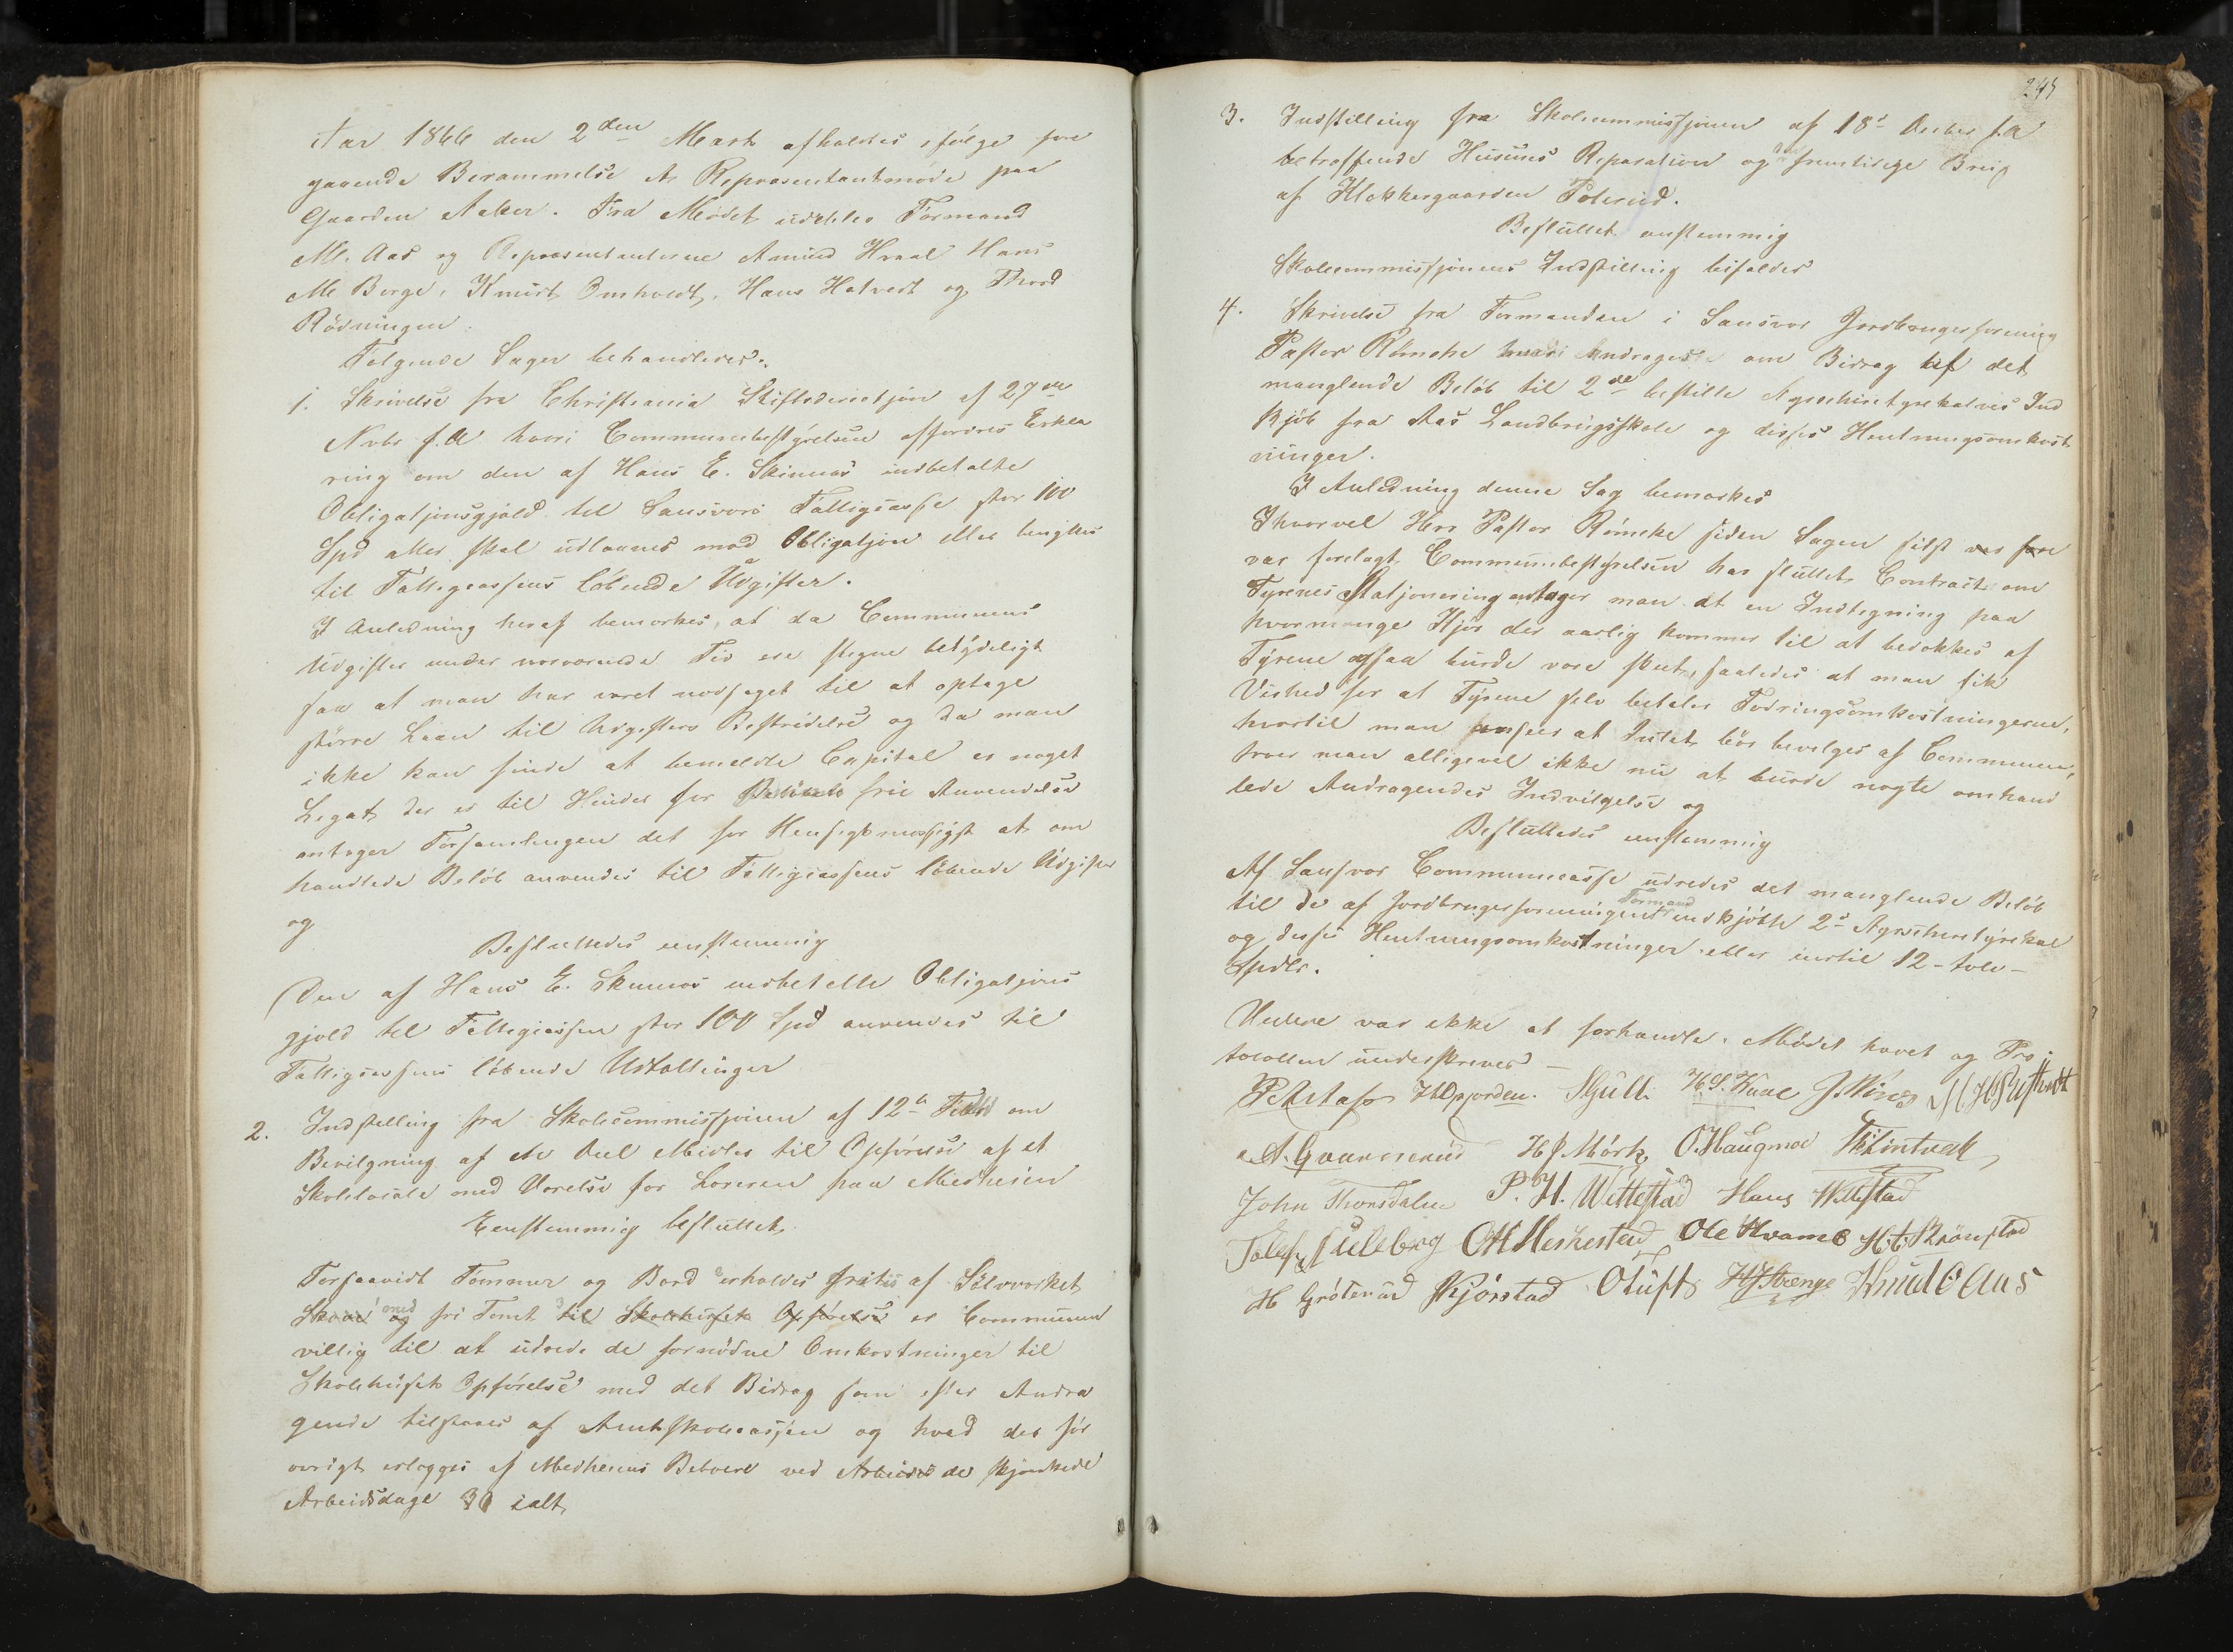 Aar 1866 den 2den Marts afholdtes ifølge fore
gaaende Berammelse et Repræsentantmøde paa
Gaarden Aaker. Fra Mødet udeblev Formand
M. Aas og Repræsentanterne Amund Hraal Hans
M Berge, Knudt Omholdt, Hans Hatvedt og Thord
Rødningen.
Følgende Sager behandledes:
1. Skrivelse fra Christiania Stiftsdirectjon af 27de
Novbr f. A. hvori Communebestyrelsen affordres Erklæ
ring om den af Hans E. Skinnæs indbetalte
Obligatjonsgjæld til Sansværs Fattigcasse stor 100
Spd atter skal udlaanes mod Obligatjon eller benyttes
til Fattigcassens løbende Udgifter.
I Anledning heraf bemærkes, at da Communens
Udgifter under nærværende Tid ere stegne betydeligt
saa at man har været nødsaget til at optage
større Laan til Udgifters Bestridelse og da man
ikke kan finde at bemeldte Capital er noget
Legat der er til Hinder for frie Anvendelse
antager Forsamlingen det for Hensigtsmæssigst at om
handlede Beløb anvendes til Fattigcassens løbende Udgifter
og
Besluttedes eenstemmig
Den af Hans E. Skinnæs indbetalte Obligatjons
gjæld til Fattigcassen stor 100 Spd anvendes til
Fattigcassens løbende Udtællinger
2. Indstilling fra Skolecommissjonen af 12te Febr om
Bevilgning af en Deel Midler til Opførelse af et
Skolelocale med Værelse for Læreren paa Medheien
Eenstemmig besluttet
Forsaavidt Tømmer og Bord erholdes fritt af Sølvværket
Skove med og fri Tomt til Skolehusets Opførelse er Communen
villig til at udrede de fornødne Omkostninger til
Skolehusets Opførelse med det Bidrag som efter Andra
gende tilstaaes af Amtsskolecassen og hvad der før
øvrigt erlægges af Medheiens Beboere ved Arbeide de skjænkede
Arbeidsdage 30 ialt
3. Indstilling fra Skolecommissjonen af 18de Decbr f. A
betræffende Husenes Reparation og den fremtidige Brug
af Klokkergaarden Foterud.
Besluttet enstemmig
Skolecommissjonens Indstilling bifaldes
4. Skrivelse fra Formanden i Sansvær Jordbrugerforening
Pastor Rømcke hvori andrages om Bidrag af det
manglende Beløb til 2de bestilte Ayrschiretyrekalves Ind
kjøb fra Aas Landbrugsskole og disses Hentningsomkost
ninger.
I Anledning denne Sag bemærkes
Ihvorvel Herr Pastor Rømcke siden Sagen sidst var fore
var forelagt Communebestyrelsen har sluttet Contract om
Tyrenes Statjonering antager man at en Indtegning paa
hvormange Kjør der aarlig kommer til at bedækkes af
Tyrene ogsaa burde være skeet, saaledes at man fik
Vished for at Tyrene selv betaler Fodringsomkostningerne,
hvortil man anseer at Intet bør bevilges af Communen,
troer man alligevel ikke nu at burde nægte omhand
lede Andragendes Indvilgelse og
Besluttedes eenstemmig
Af Sansvær Communecasse udredes det manglende Beløb
til de af Jordbrugerforeningens Formand indkjøbte 2de Ayrschiretyrekal
og disses Hentningsomkostninger eller indtil 12 - tolv -
Spdlr.
Videre var ikke at forhandle. Mødet hævet og Pro
tocollen underskreves -
H Opjorden. Skjull.
H J. Mørk O. Haugmoe
John Thorsdalen P. H. Wettestad Hans Wettestad
Fuleberg O H Meshestad Ole Hvambs H. t. Skrønstad
H Grøterud Kjørstad O Tufts H J Strenge Knud O Aas